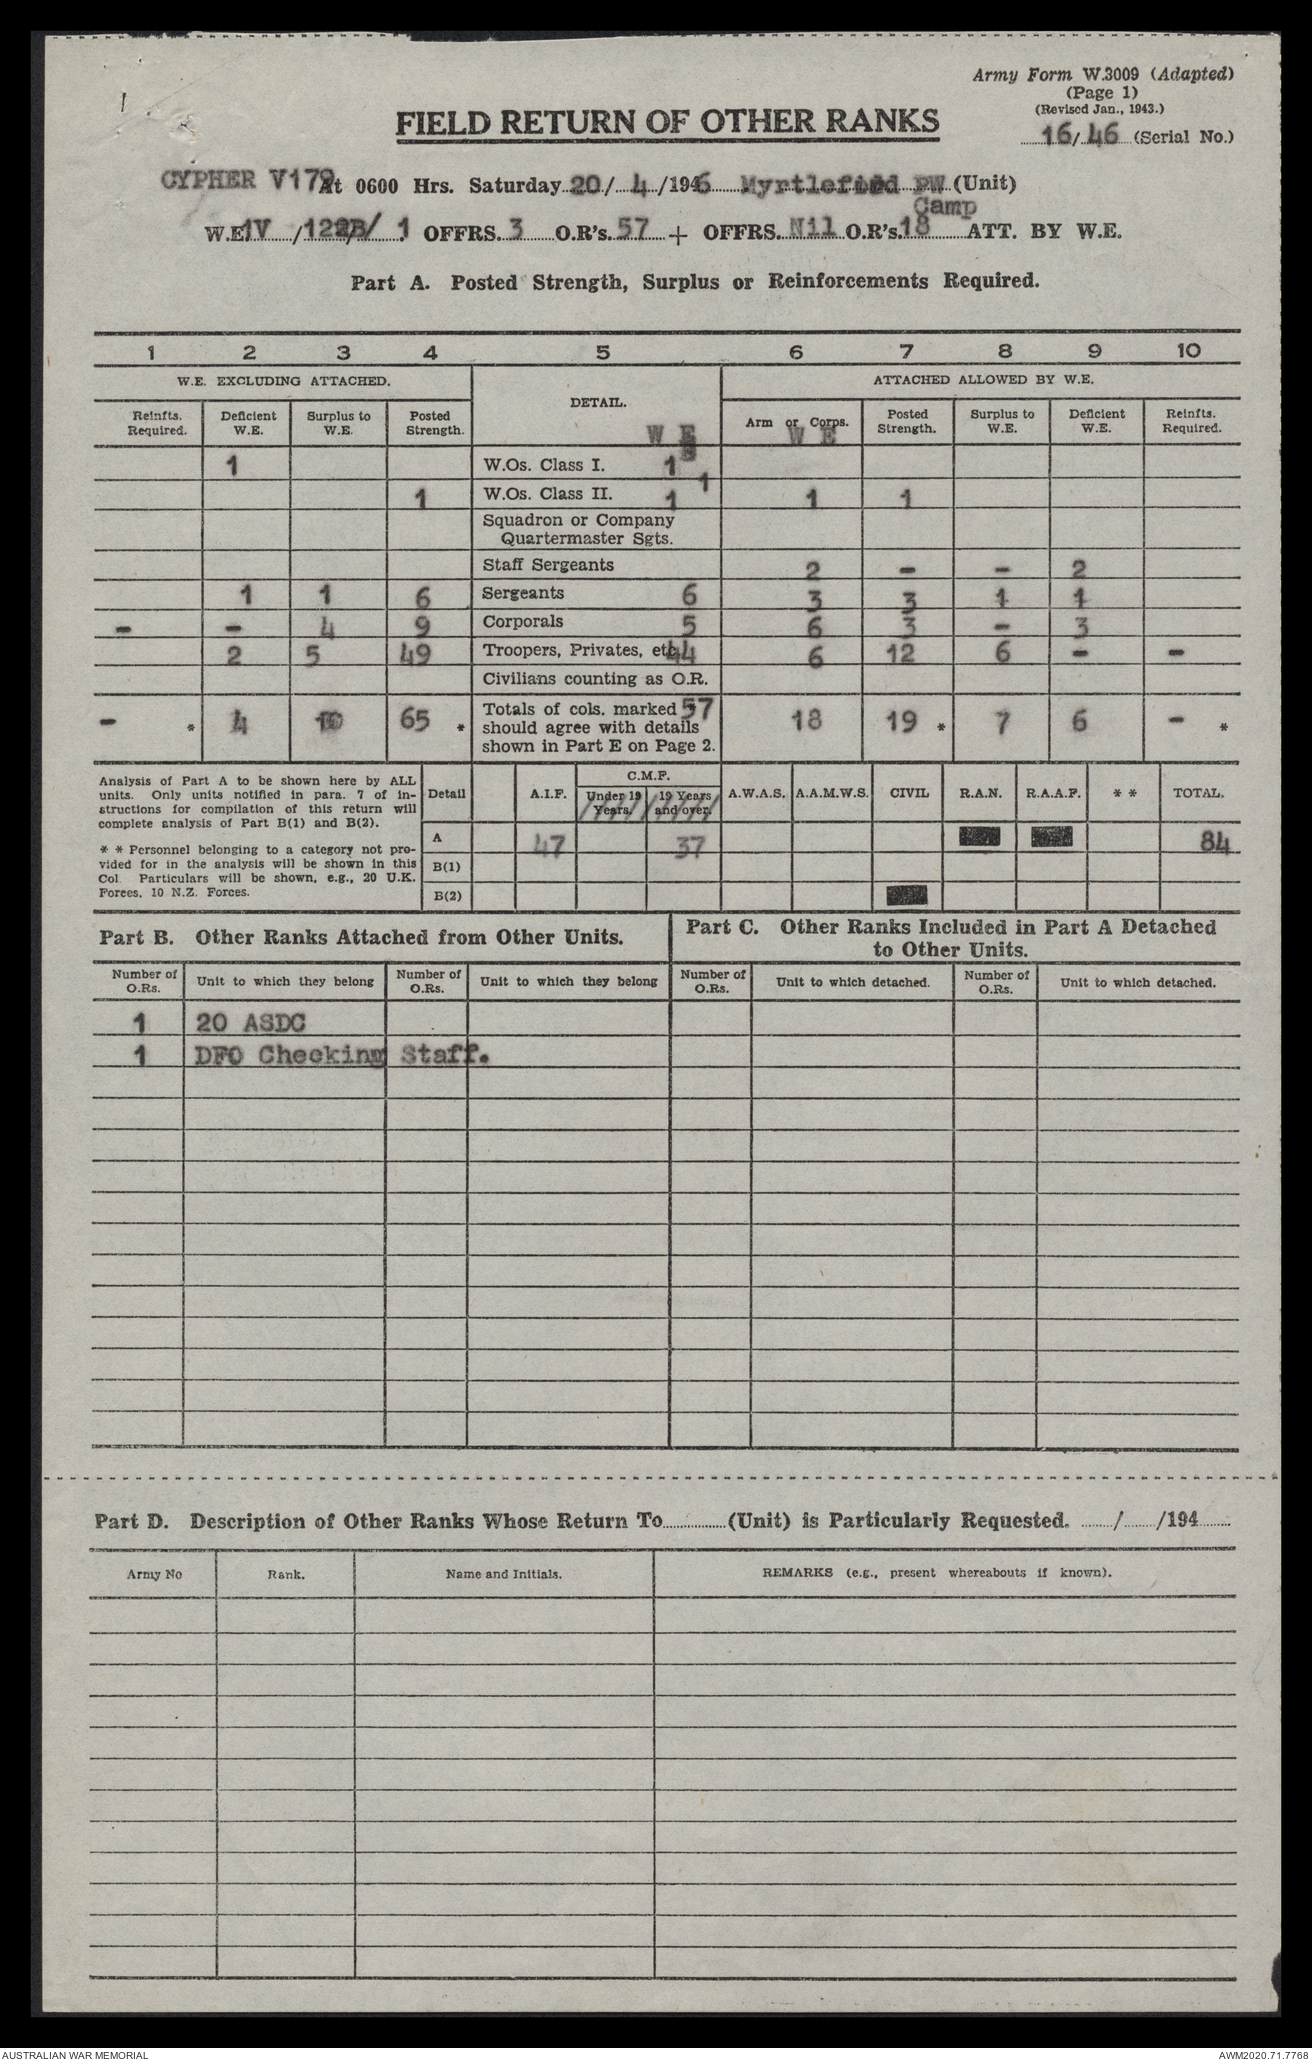 Army Form W.3009 (Adapted)
(Page 1)
(Revised Jan., 1943.)
16/46 (Serial No.)
FIELD RETURN OF OTHER RANKS
CYPHER V179 At 0600 Hrs. Saturday 20/ 4 /1946 Myrtleford PW (Unit)
Camp
W.E. 1V / / 1 OFFRS. 3 O.R's. 57 + OFFRS. Nil O.R's. 18 ATT. BY W.E.
Part A. Posted Strength, Surplus or Reinforcements Required.
1 2 3 4 5 6 7 8 9 10
W.E. EXCLUDING ATTACHED. DETAIL. ATTACHED ALLOWED BY W.E.
Reinfts. Required. Deficient W.E. Surplus to W.E. Posted Strength. W E Arm or Corps. W E Posted Strength. Surplus to W.E. Deficient W.E. Reinfts. Required.
1 W.Os. Class I. 1
1 W.Os. Class II. 1 1 1 1
Squadron or Company
Quartermaster Sgts.
Staff Sergeants 2 - - 2
1 1 6 Sergeants 6 3 3 1 1
- - 4 9 Corporals 5 6 3 - 3
2 5 49 Troopers, Privates, etc. 44 6 12 6 - -
Civilians counting as O.R.
- * 4 10 65 * Totals of cols. marked 57 18 19 * 7 6 - *
should agree with details
shown in Part E on Page 2.
Analysis of Part A to be shown here by ALL
units. Only units notified in para. 7 of in-
structions for compilation of this return will
complete analysis of Part B(1) and B(2).
* * Personnel belonging to a category not pro-
vided for in the analysis will be shown in this
Col. Particulars will be shown, e.g., 20 U.K.
Forces, 10 N.Z. Forces.
Detail A.I.F. C.M.F. Under 19 Years. 19 Years and over. A.W.A.S. A.A.M.W.S. CIVIL R.A.N. R.A.A.F. * * TOTAL.
A 47 37 84
B(1)
B(2)
Part B. Other Ranks Attached from Other Units.
Part C. Other Ranks Included in Part A Detached
to Other Units.
Number of O.Rs. Unit to which they belong Number of O.Rs. Unit to which they belong Number of O.Rs. Unit to which detached. Number of O.Rs. Unit to which detached.
1 20 ASDC
1 DFO Checking Staff.
Part D. Description of Other Ranks Whose Return To (Unit) is Particularly Requested. / /194
Army No Rank. Name and Initials. REMARKS (e.g., present whereabouts if known).
AUSTRALIAN WAR MEMORIAL AWM2020.71.7768